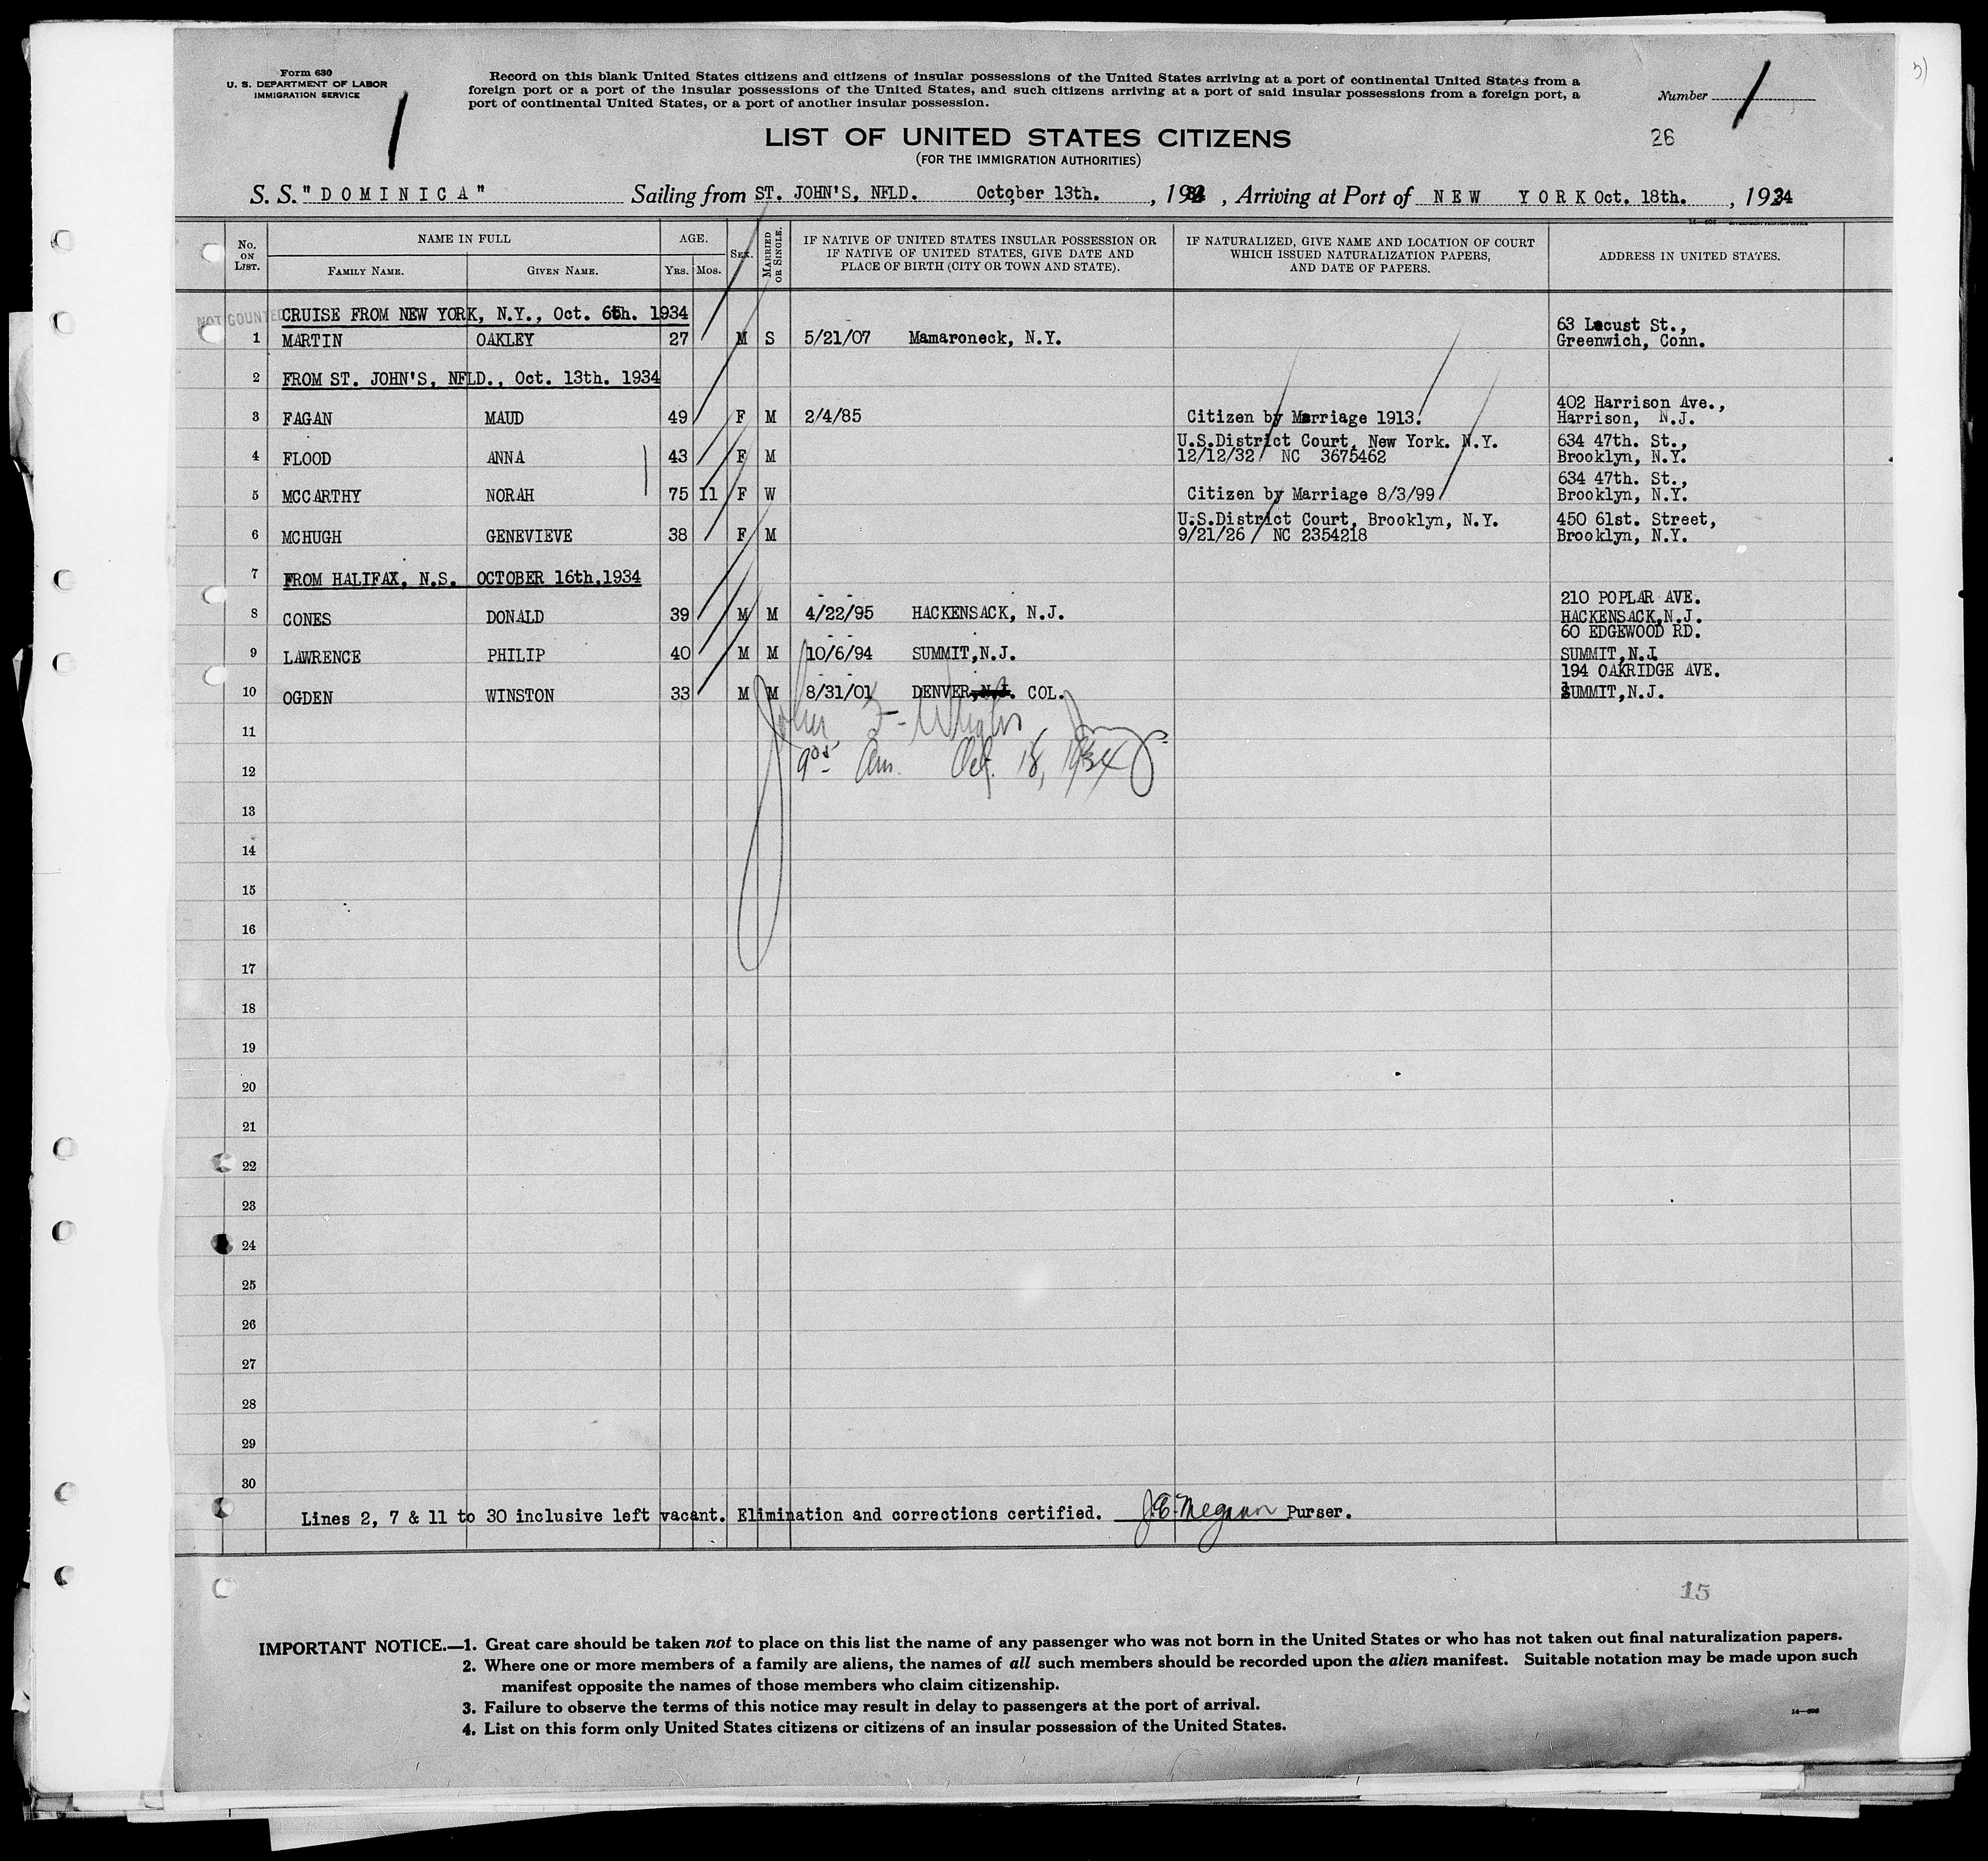 Form 630
U. S. DEPARTMENT OF LABOR
IMMIGRATION SERVICE
Record on this blank United States citizens and citizens of insular possessions of the United States arriving at a port of continental United States from a
foreign port or a port of the insular possessions of the United States, and such citizens arriving at a port of said insular possessions from a foreign port, a
port of continental United States, or a port of another insular possession.
Number 1
1
26
LIST OF UNITED STATES CITIZENS
(FOR THE IMMIGRATION AUTHORITIES)
S. S. "DOMINICA" Sailing from ST. JOHN'S, NFLD. October 13th. , 1934 , Arriving at Port of NEW YORK Oct. 18th. , 1934
No. ON LIST. NAME IN FULL FAMILY NAME. GIVEN NAME. AGE. YRS. MOS. SEX. MARRIED OR SINGLE. IF NATIVE OF UNITED STATES INSULAR POSSESSION OR IF NATIVE OF UNITED STATES, GIVE DATE AND PLACE OF BIRTH (CITY OR TOWN AND STATE). IF NATURALIZED, GIVE NAME AND LOCATION OF COURT WHICH ISSUED NATURALIZATION PAPERS, AND DATE OF PAPERS. ADDRESS IN UNITED STATES.
NOT COUNTED
CRUISE FROM NEW YORK, N.Y., Oct. 6th. 1934
1 MARTIN OAKLEY 27 M S 5/21/07 Mamaroneck, N.Y. 63 Locust St., Greenwich, Conn.
2 FROM ST. JOHN'S, NFLD., Oct. 13th. 1934
3 FAGAN MAUD 49 F M 2/4/85 Citizen by Marriage 1913. 402 Harrison Ave., Harrison, N.J.
4 FLOOD ANNA 43 F M U.S.District Court, New York. N.Y. 12/12/32 NC 3675462 634 47th. St., Brooklyn, N.Y.
5 MCCARTHY NORAH 75 11 F W Citizen by Marriage 8/3/99 634 47th. St., Brooklyn, N.Y.
6 MCHUGH GENEVIEVE 38 F M U.S.District Court, Brooklyn, N.Y. 9/21/26 NC 2354218 450 61st. Street, Brooklyn, N.Y.
7 FROM HALIFAX, N.S. OCTOBER 16th,1934
8 CONES DONALD 39 M M 4/22/95 HACKENSACK, N.J. 210 POPLAR AVE. HACKENSACK,N.J.
9 LAWRENCE PHILIP 40 M M 10/6/94 SUMMIT,N.J. 60 EDGEWOOD RD. SUMMIT,N.J.
10 OGDEN WINSTON 33 M M 8/31/01 DENVER,N.J. COL. 194 OAKRIDGE AVE. SUMMIT,N.J.
11
9 05 Am. Oct. 18, 1934
12
13
14
15
16
17
18
19
20
21
22
23
24
25
26
27
28
29
30
Lines 2, 7 & 11 to 30 inclusive left vacant. Elimination and corrections certified. Purser.
15
IMPORTANT NOTICE.—1. Great care should be taken not to place on this list the name of any passenger who was not born in the United States or who has not taken out final naturalization papers.
2. Where one or more members of a family are aliens, the names of all such members should be recorded upon the alien manifest. Suitable notation may be made upon such
manifest opposite the names of those members who claim citizenship.
3. Failure to observe the terms of this notice may result in delay to passengers at the port of arrival.
4. List on this form only United States citizens or citizens of an insular possession of the United States.
14—606